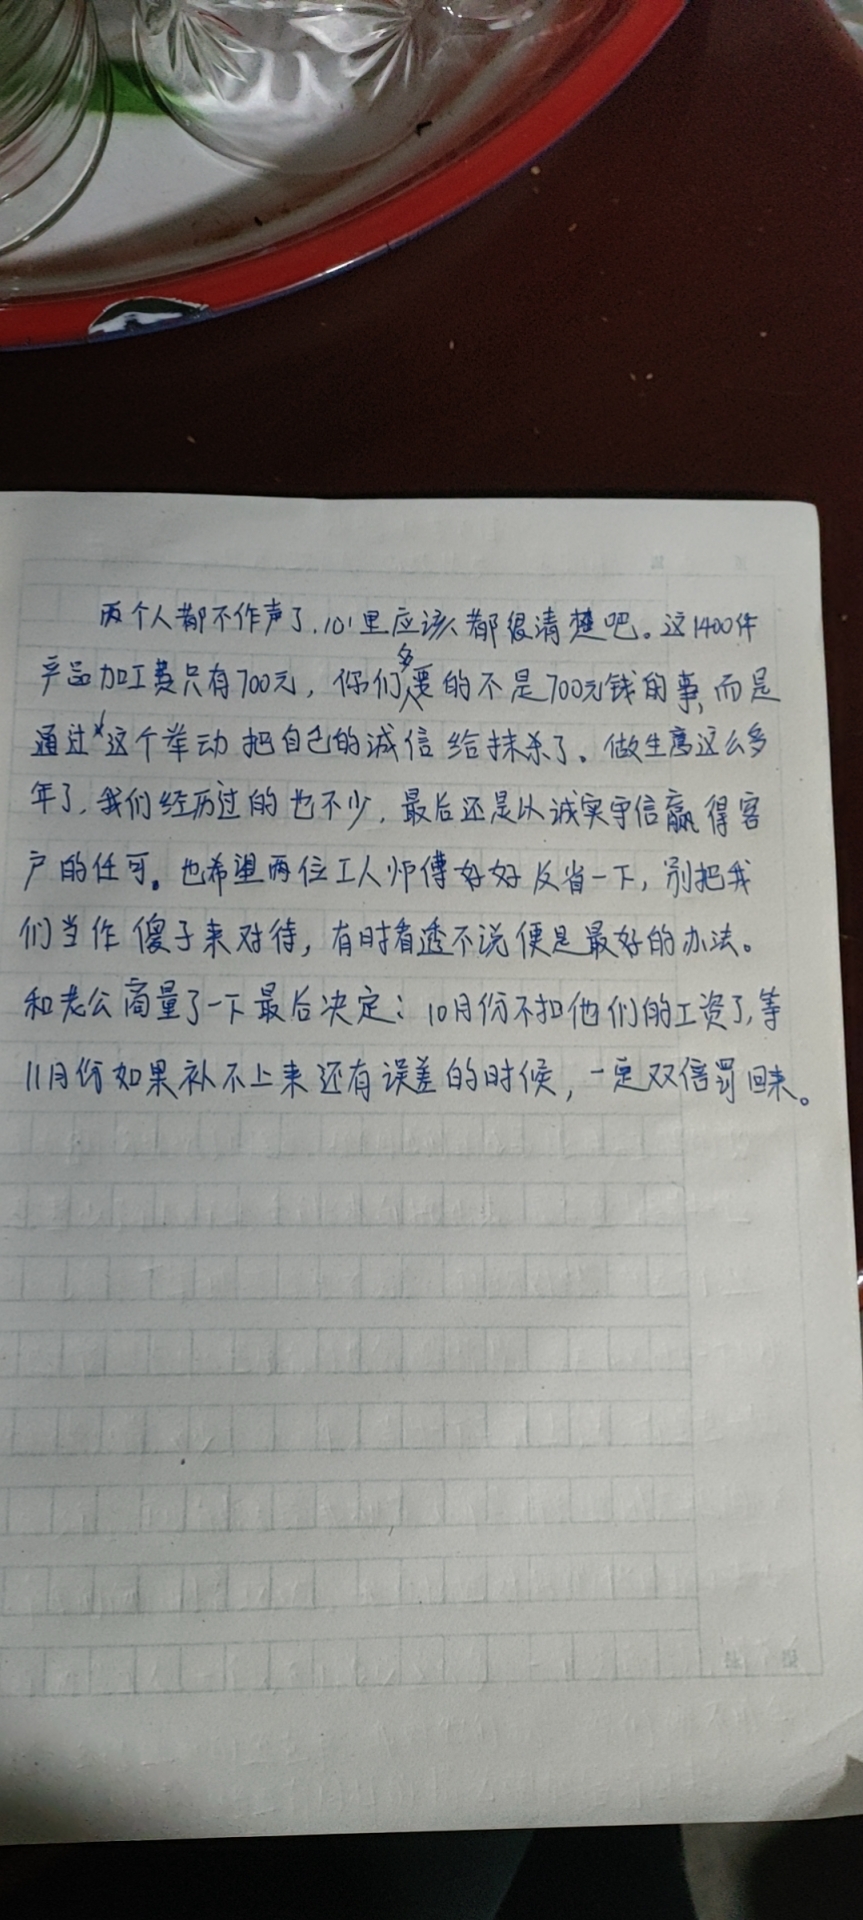 两个人都不作声了.心里应该都很清楚吧。这1400件
产品加工费只有700元，你们多要的不是700元钱的事,而是
通过这个举动把自己的诚信给抹杀了。做生意这么多
年了,我们经历过的也不少，最后还是以诚实守信赢得客
户的任可。也希望两位工人师傅好好反省一下，别把我
们当作傻子来对待，有时看透不说便是最好的办法。
和老公商量了一下最后决定：10月份不扣他们的工资了,等
11月份如果补不上来还有误差的时候，一定双倍罚回来。